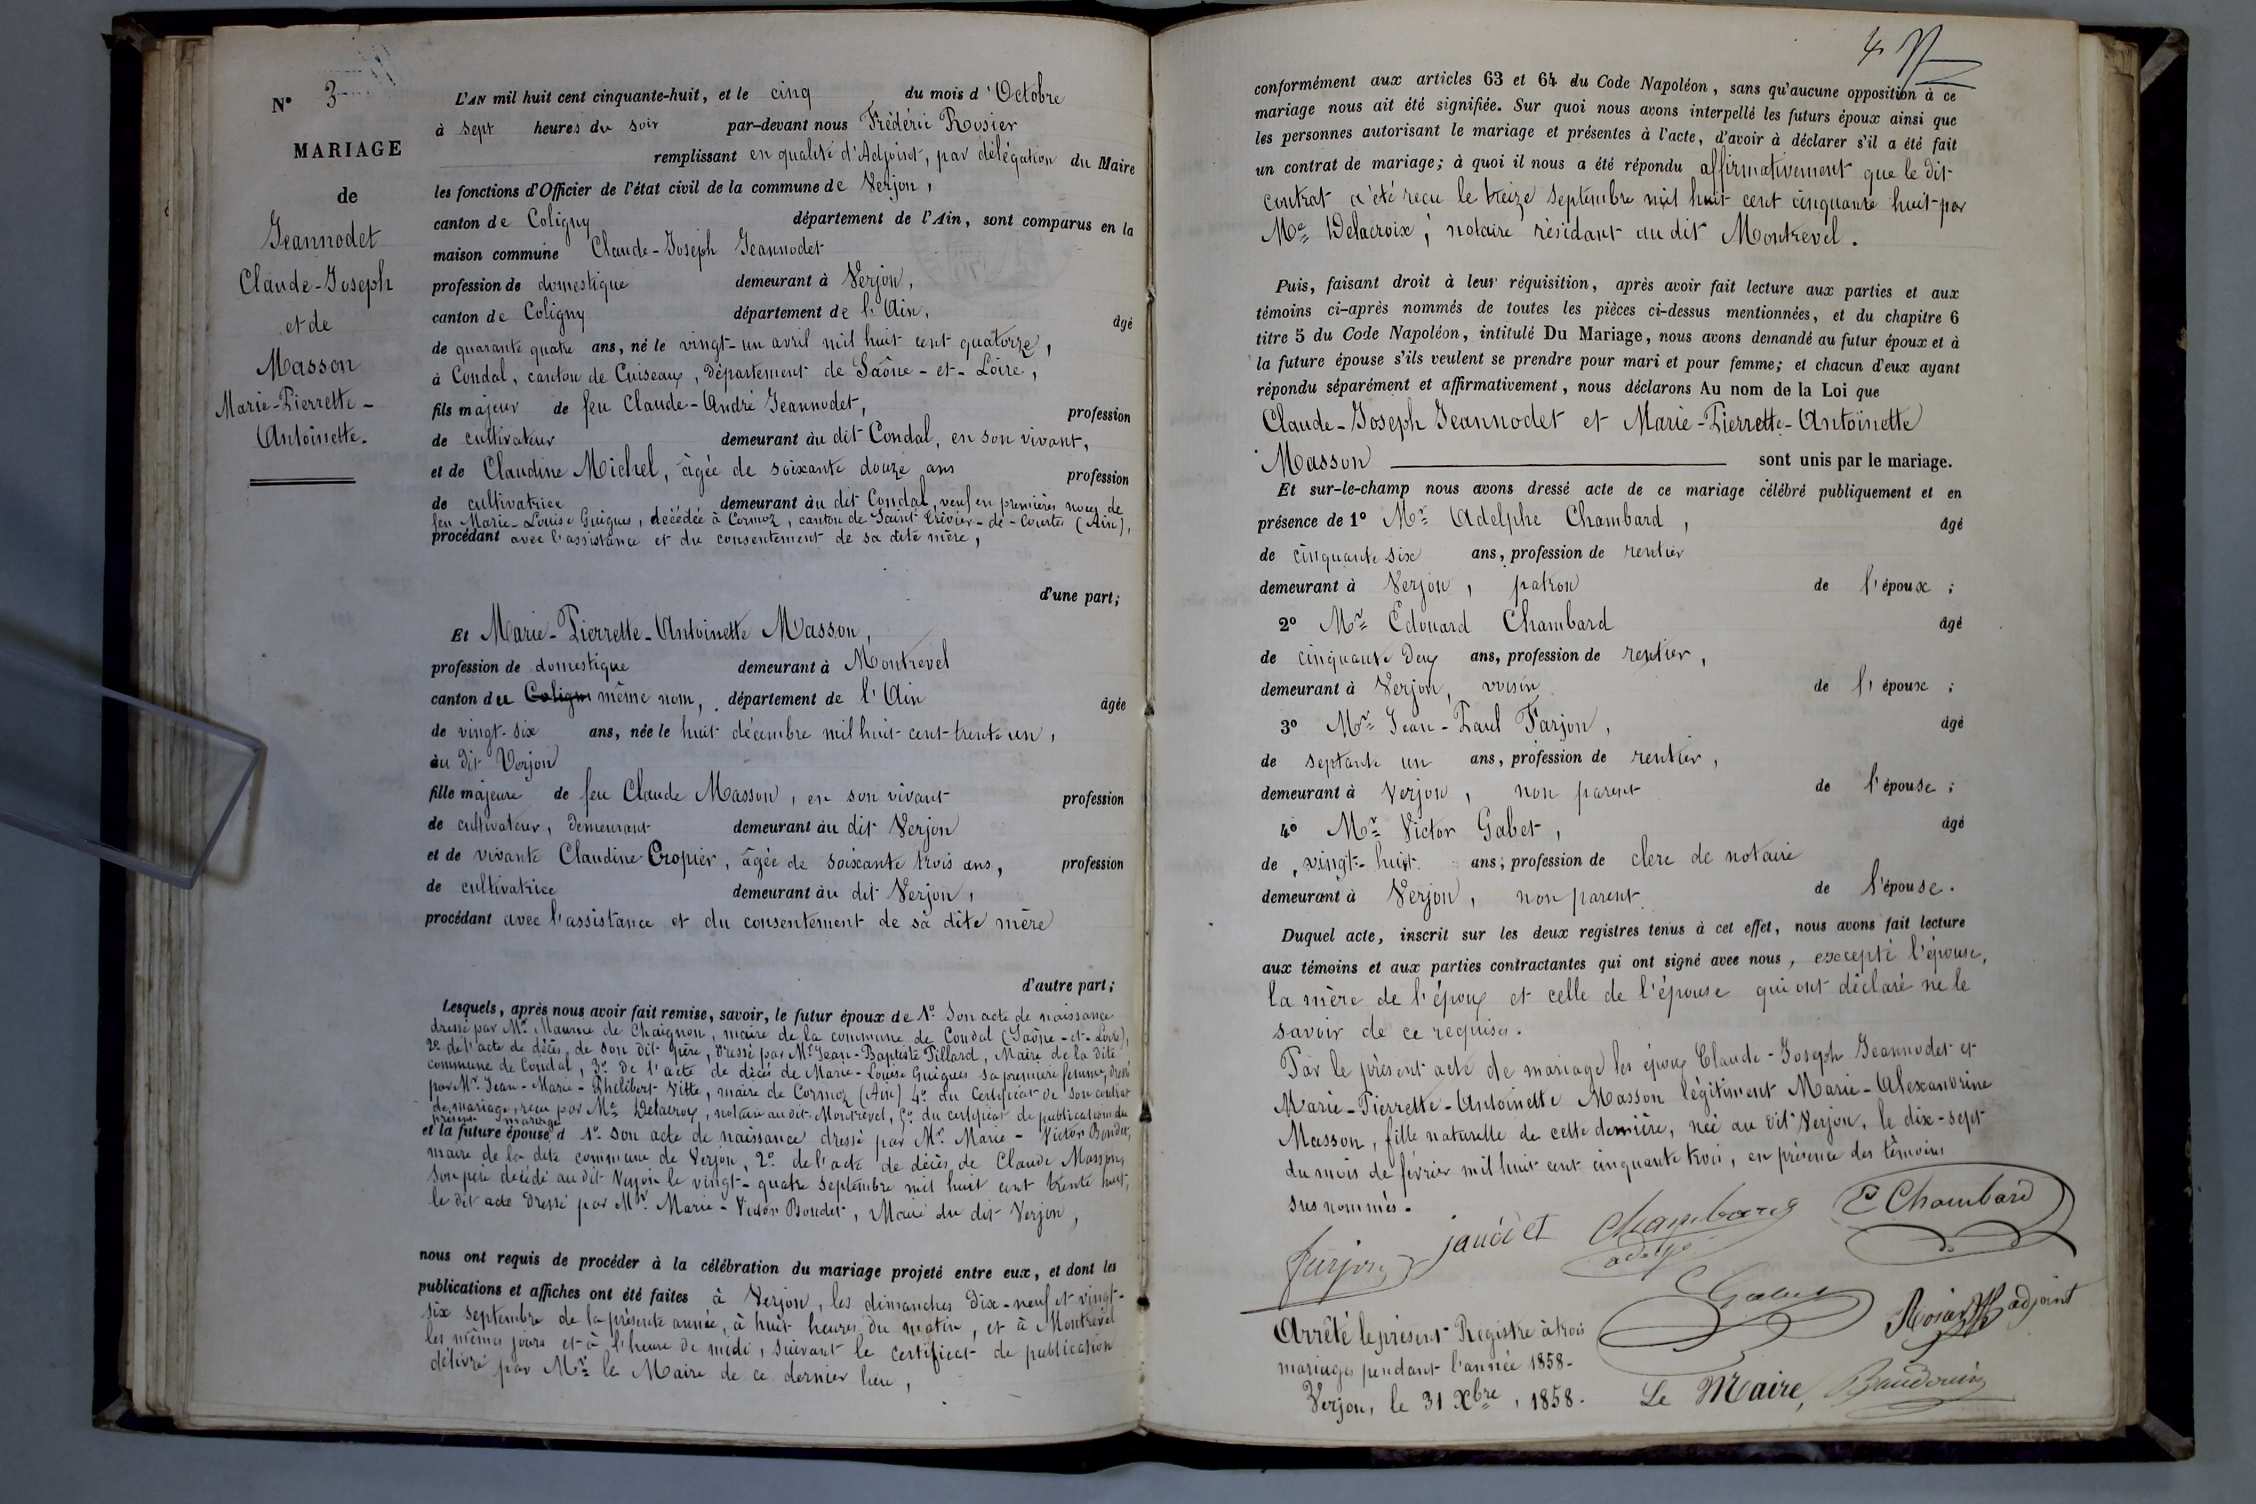 N° 3
MARIAGE
de
Jeannodet
Claude-Joseph
et de
Masson
Marie-Pierrette-
Antoinette.
L'AN mil huit cent cinquante-huit, et le cinq du mois d'Octobre
à sept heures du soir par-devant nous Frédéric Rosier
remplissant en qualité d'Adjoint, par délégation du Maire
les fonctions d'Officier de l'état civil de la commune de Verjon,
canton de Coligny département de l'Ain, sont comparus en la
maison commune Claude-Joseph Jeannodet
profession de domestique demeurant à Verjon,
canton de Coligny département de l'Ain, âgé
de quarante quatre ans, né le vingt-un avril mil huit cent quatorze,
à Condal, canton de Cuiseaux, département de Saône-et-Loire,
fils majeur de feu Claude-André Jeannodet, profession
de cultivateur demeurant àu dit Condal, en son vivant,
et de Claudine Michel, âgée de soixante douze ans profession
de cultivatrice demeurant àu dit Condal, veuf en premières noces de
feu Marie-Louise Guigues, décédée à Cormoz, canton de Saint Trivier-de-Courtes (Ain),
procédant avec l'assistance et du consentement de sa dite mère,
d'une part;
Et Marie-Pierrette-Antoinette Masson,
profession de domestique demeurant à Montrevel
canton deu Coligni même nom, département de l'Ain âgée
de vingt-six ans, née le huit décembre mil huit cent trente un,
àu dit Verjon
fille majeure de feu Claude Masson, en son vivant profession
de cultivateur, demeurant demeurant àu dit Verjon
et de vivante Claudine Cropier, âgée de soixante trois ans, profession
de cultivatrice demeurant àu dit Verjon,
procédant avec l'assistance et du consentement de sa dite mère
d'autre part;
Lesquels, après nous avoir fait remise, savoir, le futur époux de 1° Son acte de naissance
dressé par Mr. Maurice de Chaignon, maire de la commune de Condal (Saône-et-Loire),
2° de l'acte de décès, de son dit père, dressé par Mr Jean-Baptiste Pillard, Maire de la dite
commune de Condal, 3° de l'acte de décès de Marie-Louise Guigues sa première femme, dressé
par Mr. Jean-Marie-Philibert Vitte, maire de Cormoz (Ain) 4° du Certificat de son contrat
de mariage, reçu par Me Delacroix, notaire au dit Montrevel, 5° du certificat de publication du
présent mariage
et la future épouse d 1° son acte de naissance dressé par Mr. Marie-Victor Bondet,
maire de la dite commune de Verjon, 2° de l'acte de décès de Claude Masson,
son père décédé au dit Verjon le vingt-quatre septembre mil huit cent trente huit,
le dit acte dressé par Mr. Marie-Victor Bondet, Maire du dit Verjon,
nous ont requis de procéder à la célébration du mariage projeté entre eux, et dont les
publications et affiches ont été faites à Verjon, les dimanches dix-neuf et vingt-
six septembre de la présente année, à huit heures du matin, et à Montrevel
les mêmes jours et à l'heure de midi, suivant le certificat de publication
délivré par Mr le Maire de ce dernier lieu,
4
conformément aux articles 63 et 64 du Code Napoléon, sans qu'aucune opposition à ce
mariage nous ait été signifiée. Sur quoi nous avons interpellé les futurs époux ainsi que
les personnes autorisant le mariage et présentes à l'acte, d'avoir à déclarer s'il a été fait
un contrat de mariage; à quoi il nous a été répondu affirmativement que le dit
contrat a été reçu le treize septembre mil huit cent cinquante huit par
Me Delacroix, notaire résidant au dit Montrevel.
Puis, faisant droit à leur réquisition, après avoir fait lecture aux parties et aux
témoins ci-après nommés de toutes les pièces ci-dessus mentionnées, et du chapitre 6
titre 5 du Code Napoléon, intitulé Du Mariage, nous avons demandé au futur époux et à
la future épouse s'ils veulent se prendre pour mari et pour femme; et chacun d'eux ayant
répondu séparément et affirmativement, nous déclarons Au nom de la Loi que
Claude-Joseph Jeannodet et Marie-Pierrette-Antoinette
Masson sont unis par le mariage.
Et sur-le-champ nous avons dressé acte de ce mariage célébré publiquement et en
présence de 1° Mr Adelphe Chambard, âgé
de cinquante six ans, profession de rentier
demeurant à Verjon, patron de l'époux;
2° Mr Edouard Chambard âgé
de cinquante deux ans, profession de rentier,
demeurant à Verjon, voisin de l'époux;
3° Mr Jean-Paul Farjon, âgé
de septante un ans, profession de rentier,
demeurant à Verjon, non parent de l'épouse;
4° Mr Victor Gabet, âgé
de vingt-huit ans, profession de clerc de notaire
demeurant à Verjon, non parent de l'épouse.
Duquel acte, inscrit sur les deux registres tenus à cet effet, nous avons fait lecture
aux témoins et aux parties contractantes qui ont signé avec nous, excepté l'épouse,
la mère de l'époux et celle de l'épouse qui ont déclaré ne le
savoir de ce requises.
Par le présent acte de mariage les époux Claude-Joseph Jeannodet et
Marie-Pierrette-Antoinette Masson légitiment Marie-Alexandrine
Masson, fille naturelle de cette dernière, née au dit Verjon, le dix-sept
du mois de février mil huit cent cinquante trois, en présence des témoins
sus nommés.
Farjon janodet Chambard E Chambard
adelphe
Gabet
Rosier adjoint
Arrêté le présent Registre à trois
mariages pendant l'année 1858.
Verjon, le 31 Xbre, 1858. Le Maire, Baudouin